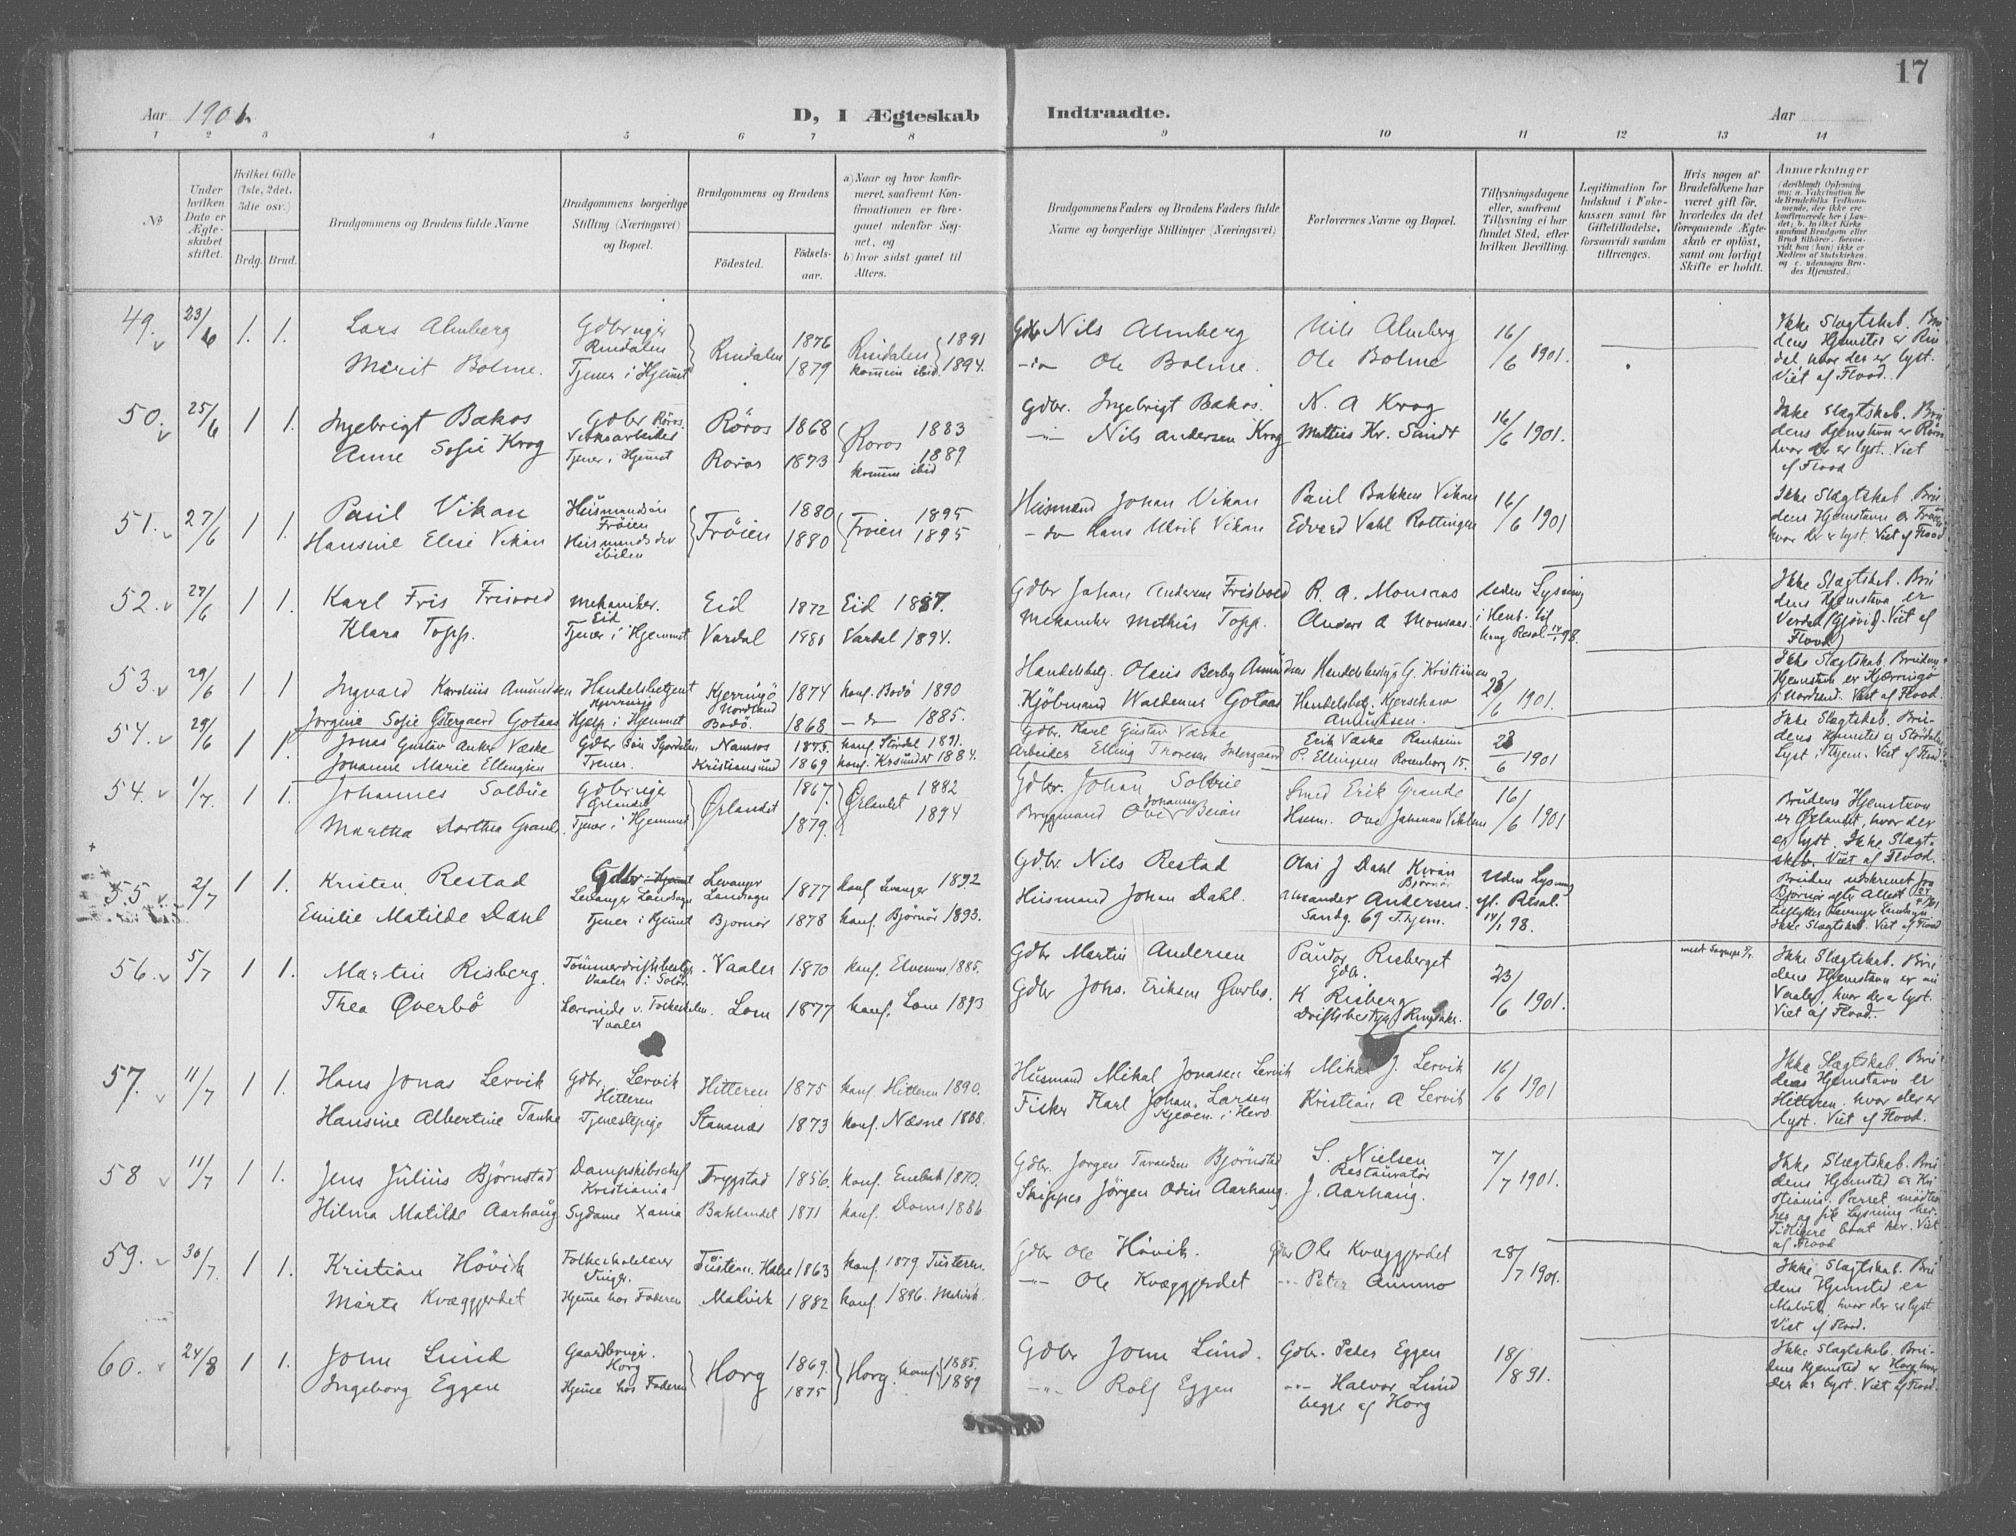 17
Aar 1901.
D, I Ægteskab Indtraadte.
Aar
1 2 3 4 5 6 7 8 9 10 11 12 13 14
№
Under hvilken Dato er Ægteskabet stiftet.
Hvilket Gifte (1ste, 2det, 3die osv.)
Brdg. Brud.
Brudgommens og Brudens fulde Navne
Brudgommens borgerlige Stilling (Næringsvei) og Bopæl.
Brudgommens og Brudens
Fødested.
Fødselsaar.
a) Naar og hvor konfirmeret, saafremt Konfirmationen er foregaaet udenfor Sognet, og
b) hvor sidst gaaet til Alters.
Brudgommens Faders og Brudens Faders fulde Navne og borgerlige Stillinger (Næringsvei)
Forlovernes Navne og Bopæl.
Tillysningsdagene eller, saafremt Tillysning ei har fundet Sted, efter hvilken Bevilling.
Legitimation for Indskud i Enkekassen samt for Giftetilladelse, forsaavidt saadan tiltrænges.
Hvis nogen af Brudefolkene har været gift før, hvorledes da det foregaaende Ægteskab er opløst, samt om lovligt Skifte er holdt.
Anmærkninger
49. 23/6 1. 1.
Lars Almberg Gdbruger Rindalen 1876 1891
Marit Bolme. Tjener i Hjemmet Rindalen 1879 Rindalen komm ibid. 1894.
Gdbr Nils Almberg Nils Almberg 16/6 1901.
-do- Ole Bolme. Ole Bolme
Ikke Slægtskab. Brudens Hjemsted er Rindal, hvor der er lyst. Viet af Flood.
50. 25/6 1 1.
Ingebrigt Bakos Gdbr Røros. Verksarbeider Røros 1868 1883
Anne Sofie Krog Tjener i Hjemmet Røros 1873 Røros 1889 komm ibid
Gdbr. Ingebrigt Bakos. N. A Krog 16/6 1901.
-"- Nils Andersen Krog Mathias Kr. Smidt
Ikke Slægtskab. Brudens Hjemstavn er Røros hvor der er lyst. Viet af Flood
51. 27/6 1 1.
Paul Vikan Husmandsøn Frøien 1880 1895
Hansine Elise Vikan Husmandsdtr ibiden Frøien 1880 Frøien 1895
Husmand Johan Vikan Paul Bakken Vikan 16/6 1901
-do- Hans Ulrik Vikan Edvard Vahl Rottingen
Ikke Slægtskab. Brudens Hjemstavn er Frøien hvor der er lyst. Viet af Flood
52. 27/6 1 1.
Karl Fris Frisvold Mekaniker. Eid Eid 1872 Eid 1887.
Klara Topp. Tjener i Hjemmet Vardal 1880 Vardal 1894.
Gdbr Johan Andersen Frisvold R. A. Monsaas Uden Lysning
Mekaniker Mathias Topp. Anders A Monsaas. i Henh. til kong Resol. 14/1 98.
Ikke Slægtskab. Brudens Hjemstavn er Vardal (Gjøvik). Viet af Flood
53. 29/6 1 1
Ingvard Karelius Amundsen Handelsbetjent Kjerringø Kjerringö Nordland 1874 konf. Bodö 1890
Jørgine Sofie Østergaard Gotaas Hjelp i Hjemmet Bodø. 1868 -do- 1885.
Handelsbetj. Olaus Berby Amundsen Handelsbestyr G. Kristiansen 23/6 1901.
Kjöbmand Waldemar Gotaas Handelsbetj. Kjerschow Amundsen.
Ikke Slægtskab. Brudens Hjemstavn er Kjærringö i Nordland. Viet af Flood.
54. 29/6 1 1.
Jonas Gustav Anker Væske Gdbr Søn Stjørdalen Namsos 1875. konf. Stördal 1891.
Johanne Marie Ellingsen Tjener. Kristiansund 1869 konf. Krsund 1884.
Gdbr. Karl Gustav Væske Erik Væske Ranheim 23/6 1901
Arbeider Elling Thoresen P. Ellingsen Rosenborg 15.
Ikke Slægtskab. Brudens Hjemsted er Stördalen. Lyst i Thjem. Viet af Flood.
54. 1/7. 1 1.
Johannes Solbue Gdbruger Ørlandet 1867. 1882
Martha Dorthea Grande Tjener i Hjemmet Ørlandet 1879. Ørlandet 1894
Gdbr. Johan Solbue Smed Erik Grande 16/6 1901
Brygmand Over Johannes Beian Husm. Ove Johnsen Viklem
Brudens Hjemstavn er Ørlandet, hvor der er lyst. Ikke Slægtskab. Viet af Flood.
55. 2/7 1 1.
Kristen Restad Gdbr. Levanger Landsogn Levanger Landsogn 1877 konf. Levanger 1892
Emilie Matilde Dahl Tjener i Hjemmet Bjørnør 1878 konf. Bjørnør 1893.
Gdbr Nils Restad Olai J Dahl Kiran Bjørnør Uden Lysning
Husmand Johan Dahl. Alexander Andersen. Sandg. 69 Thjem. gl. Resol. 14/1 98.
Ikke Slægtskab. Viet af Flood
56. 5/7 1 1.
Martin Risberg. Tömmerdriftsbestyr. Vaaler i Solør. Vaaler 1870 konf. Elverum 1885.
Thea Øverbö Lærerinde v. Folkeskolen Vaaler Lom 1877 konf. Lom 1893
Gdbr Martin Andersen Paudor Risberget Gdbr. 23/6 1901.
Gdbr Johs. Eriksen Øverbø. K Risberg Driftsbestyr. Ringsaker.
Ikke Slægtskab. Brudens Hjemstavn er nu Vaaler, hvor der er lyst. Viet af Flood.
57. 11/7 1 1.
Hans Jonas Lervik Gdbr. Lervik Hitteren Hitteren 1875 konf. Hitteren 1890.
Hansine Albertine Tanke Tjenestepige Stamnæs 1873 konf. Næsne 1888.
Husmand Mikal Jonasen Lervik Mikal J. Lervik 16/6 1901
Fisker Karl Johan Larsen Kristian A Lervik
Ikke Slægtskab. Brudens Hjemstavn er Hitteren. hvor der er lyst. Viet af Flood.
58 11/7 1 1.
Jens Julius Bjørnstad Dampskibschef Kristiania Trygstad 1856. konf. Enebak 1870.
Hilma Matilde Aarhaug Sydame Xania Baklandet 1871 konf. Doms 1886
Gdbr. Jørgen Bjørnstad S. Nielsen Restauratør 7/7 1901.
Skipper Jörgen Odin Aarhaug. J. Aarhaug.
Ikke Slægtskab. Brudens Hjemsted er Kristiania. Parret mødtes her og fik Lysning her. Tidligere boat her. Viet af Flood
59. 30/7. 1 1.
Kristian Hövik Folkeskolelærer Vinger. Tusteren. 1863 konf. 1879 Tusteren.
Marte Kvæggjerdet Hjeme hos Faderen Malvik 1882 konf. 1896. Malvik.
Gdbr Ole Hövik. Gdbr Ole Kvæggjerdet 28/7 1901.
-"- Ole Kvæggjerdet -"- Peter Aunmo
Ikke Slægtskab. Brudens Hjemsted er Malvik, hvor der er lyst. Viet af Flood.
60. 24/8 1 1.
John Lund Gaardbruger. Horg 1869. 1885.
Ingeborg Eggen Hjeme hos Faderen Horg 1875 Horg. konf. 1889
Gdbr John Lund. Gdbr. Peter Eggen 18/8 91.
-"- Rolf Eggen -"- Halvor Lund begge af Horg
Ikke Slægtskab. Brudens Hjemsted er Horg hvor der er lyst. Viet af Flood.